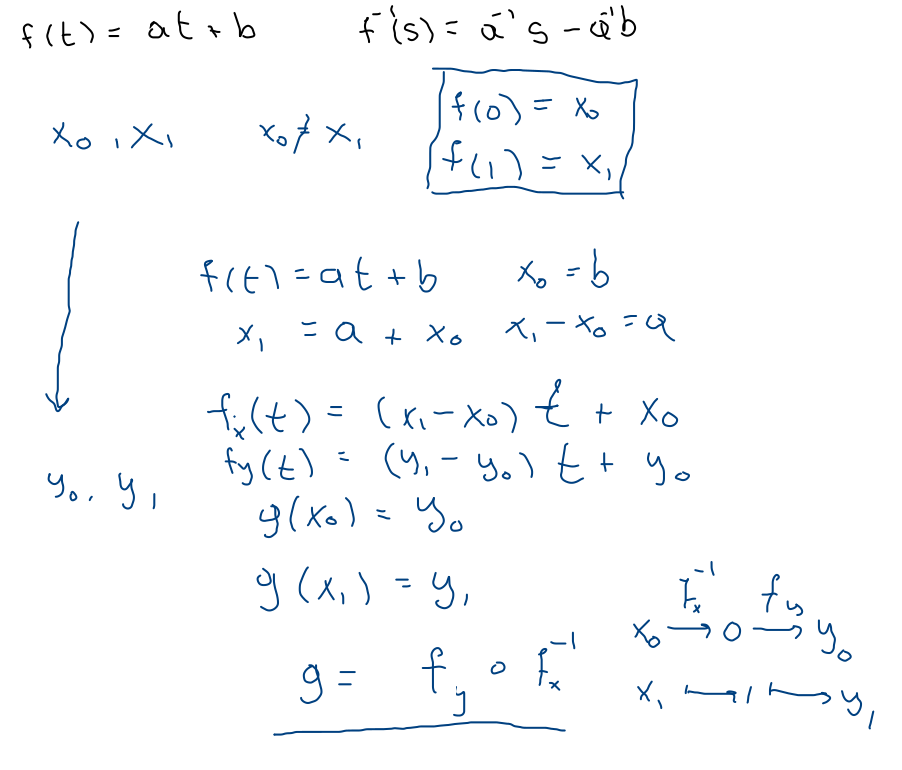 f(t) = at + b    f⁻¹(s) = a⁻¹ s − a⁻¹b
x₀, x₁    x₀ ≠ x₁    f(0) = x₀
f(1) = x₁
f(t) = at + b    x₀ = b
x₁ = a + x₀    x₁ − x₀ = a
fₓ(t) = (x₁ − x₀) t + x₀
f_y(t) = (y₁ − y₀) t + y₀
y₀, y₁
g(x₀) = y₀
g(x₁) = y₁
fₓ⁻¹    f_y
x₀ → 0 → y₀
g = f_y ∘ fₓ⁻¹
x₁ ↦ 1 ↦ y₁